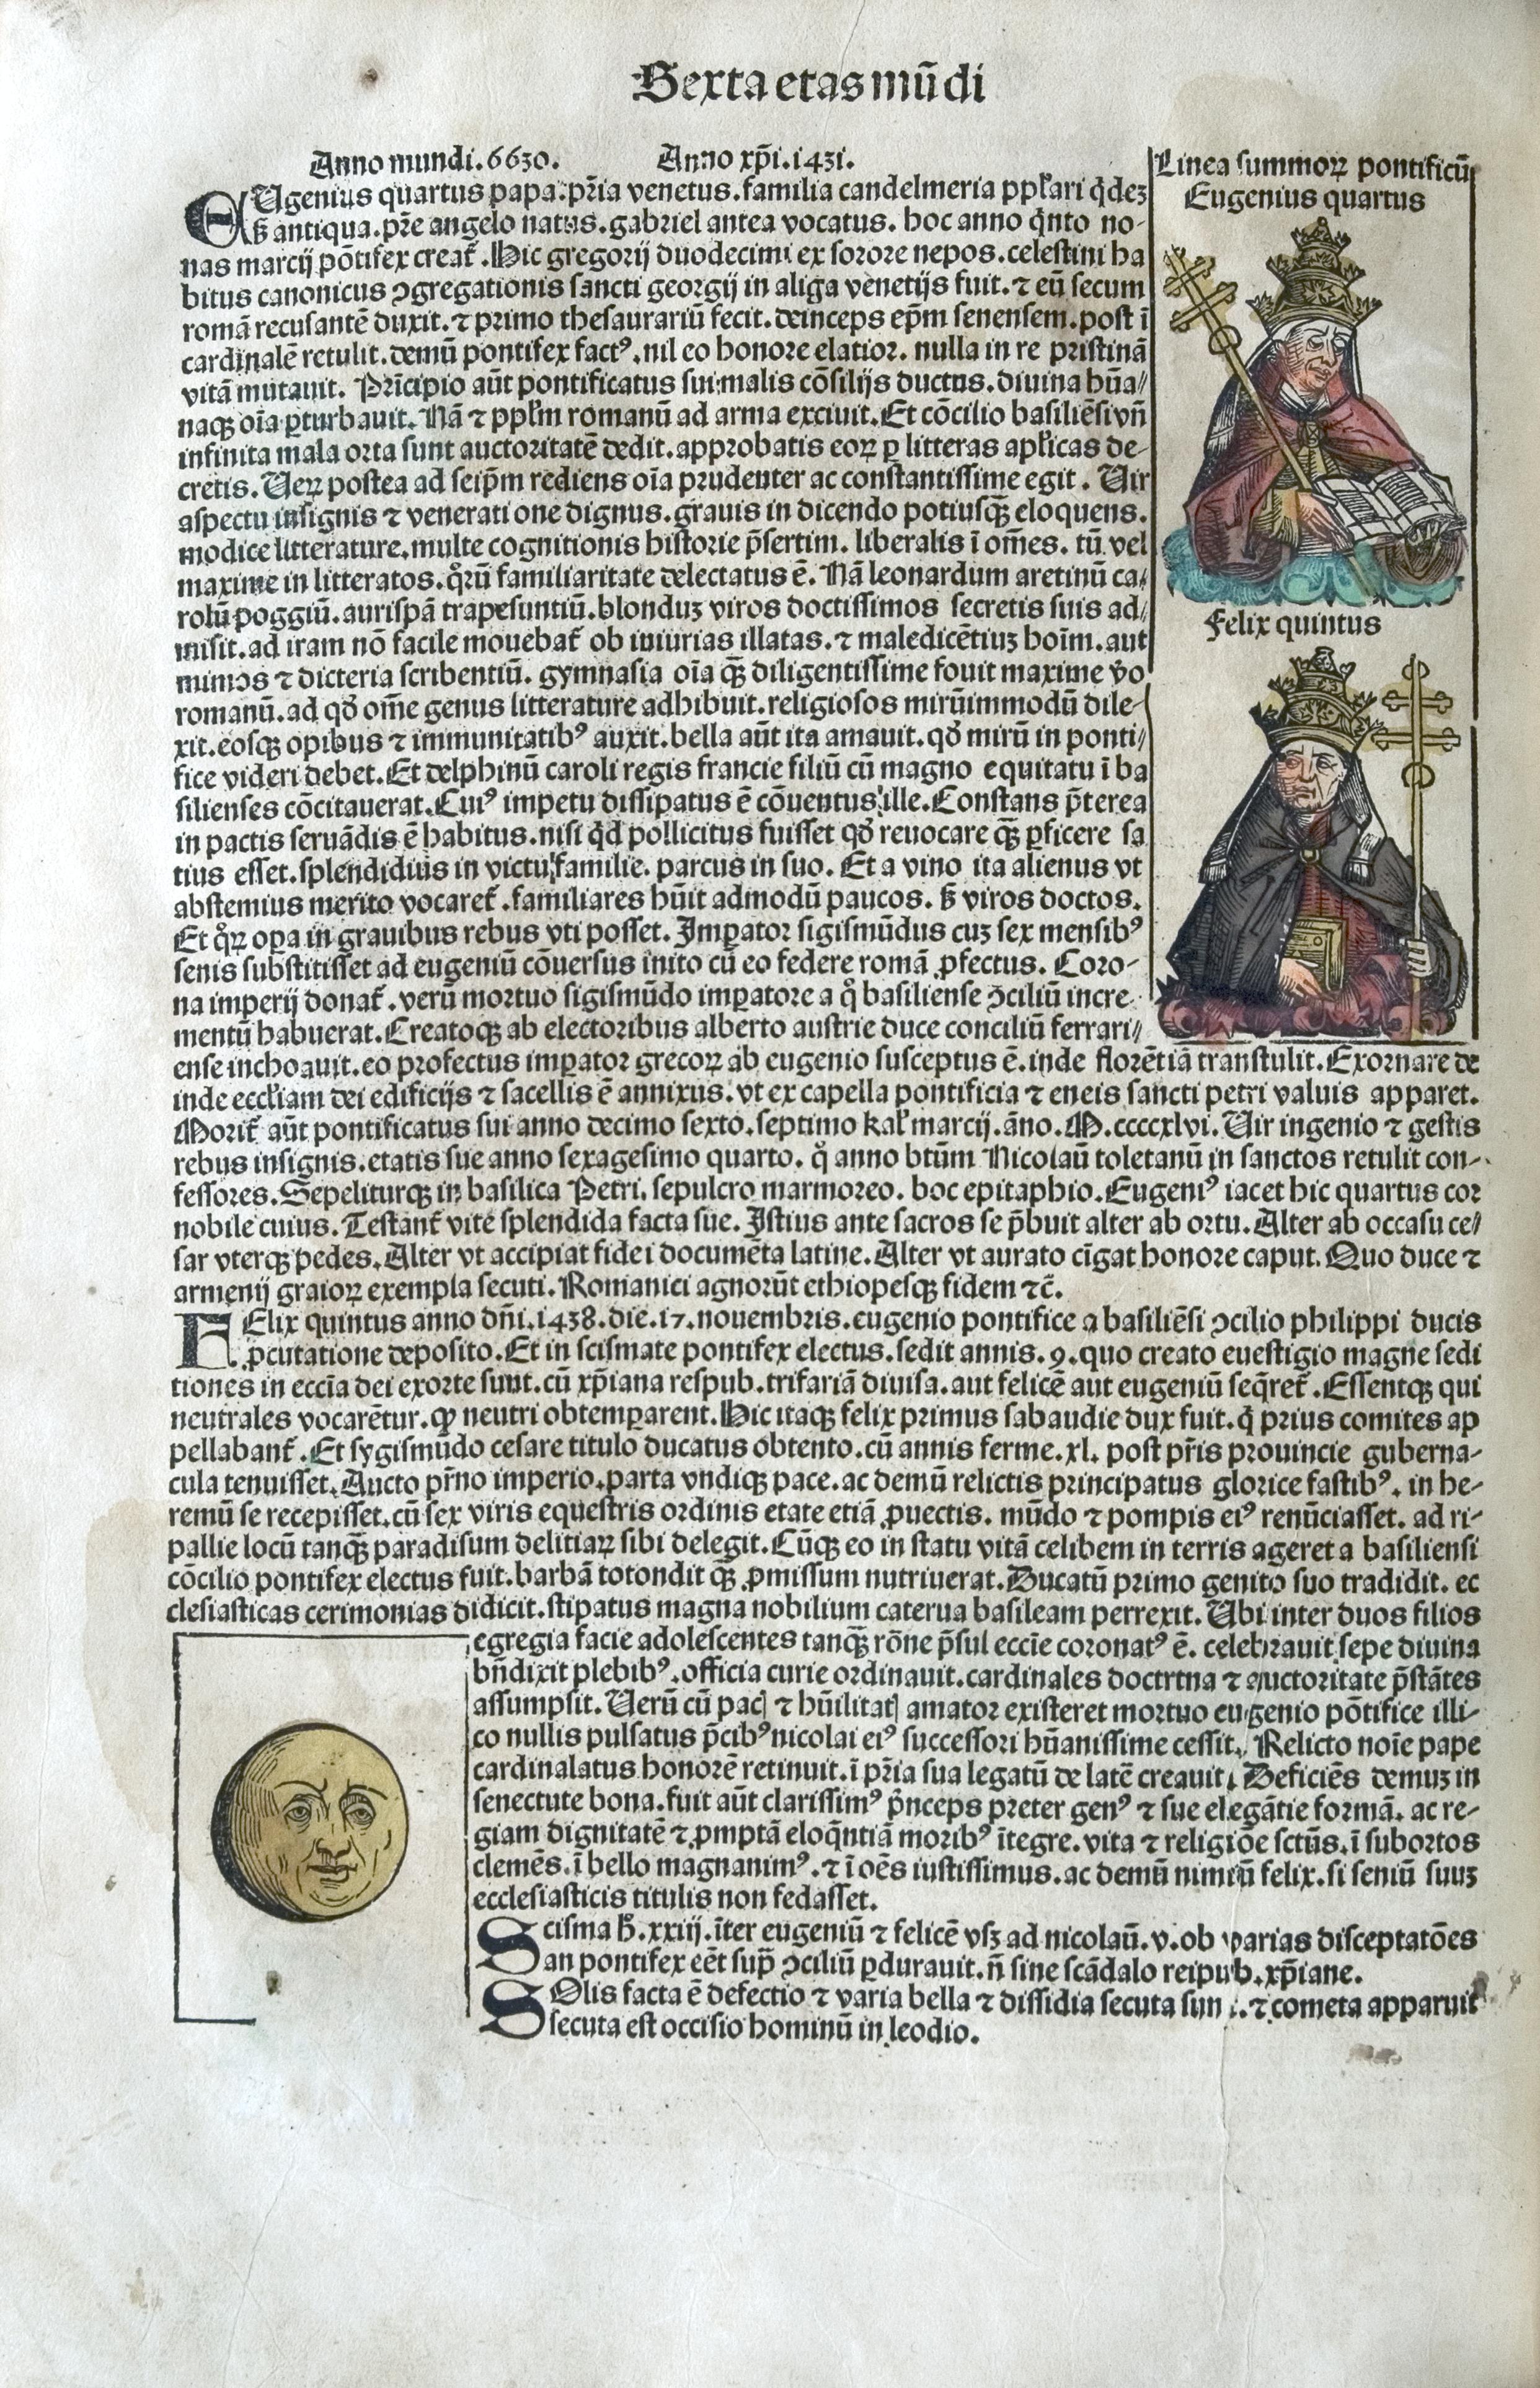 Sexta etas mūdi
Anno mundi.6630. Anno xp̄i.1431.
Linea summoꝝ pontificū
Eugenius quartus
EUgenius quartus papa.pr̄ia venetus.familia candelmeria ppłari q̄dez
sꝫ antiqua.pr̄e angelo natus.gabriel antea vocatus. hoc anno q̄nto no-
nas marcij pōtifex creat᷑.Hic gregorij duodecimi ex sorore nepos.celestini ha
bitus canonicus ꝯgregationis sancti georgij in aliga venetijs fuit.⁊ eū secum
romā recusantē duxit.⁊ primo thesaurariū fecit.deinceps ep̄m senensem.post ī
cardinalē retulit.demū pontifex factꝰ.nil eo honore elatior. nulla in re pristinā
vitā mutauit. Prīcipio aūt pontificatus sui malis cōsilijs ductus.diuina hūa/
naqꝫ oīa ꝑturbauit.Nā ⁊ ppłm romanū ad arma exciuit.Et cōcilio basiliēsi vn̄
infinita mala orta sunt auctoritatē dedit.approbatis eoꝝ ꝑ litteras apłicas de-
cretis.Ueꝝ postea ad seip̄m rediens oīa prudenter ac constantissime egit. Uir
aspectu insignis ⁊ venerati one dignus.grauis in dicendo potiusqꝫ̄ eloquens.
modice litterature.multe cognitionis historie p̄sertim. liberalis ī om̄es. tū vel
maxime in litteratos.qͦrū familiaritate delectatus ē. Nā leonardum aretinū ca/
rolū poggiū.aurispā trapesuntiū.blonduꝫ viros doctissimos secretis suis ad/
misit.ad iram nō facile mouebat᷑ ob iniurias illatas.⁊ maledicētiuꝫ hoīm.aut
mimos ⁊ dicteria scribentiū. gymnasia oīa qꝫ̄ diligentissime fouit maxime v̄o
romanū.ad qd̄ om̄e genus litterature adhibuit.religiosos mirūimmodū dile-
xit.eosqꝫ opibus ⁊ immunitatibꝰ auxit.bella aūt ita amauit.qd̄ mirū in ponti/
fice videri debet.Et delphinū caroli regis francie filiū cū magno equitatu ī ba
silienses cōcitauerat.Cuiꝰ impetu dissipatus ē cōuentus ille.Constans p̄terea
in pactis seruādis ē habitus.nisi q̄d pollicitus fuisset qd̄ reuocare qꝫ̄ ꝑficere sa
tius esset.splendidius in victu familie. parcus in suo. Et a vino ita alienus vt
abstemius merito vocaret᷑.familiares hūit admodū paucos. sꝫ viros doctos.
Et qͦꝝ oꝑa in grauibus rebus vti posset. Imꝑator sigismūdus cuꝫ sex mensibꝰ
senis substitisset ad eugeniū cōuersus inito cū eo federe romā ꝓfectus. Coro-
na imperij donat᷑.verū mortuo sigismūdo imꝑatore a qͦ basiliense ꝯciliū incre
mentū habuerat.Creatoqꝫ ab electoribus alberto austrie duce conciliū ferrari/
ense inchoauit.eo profectus imꝑator grecoꝝ ab eugenio susceptus ē.inde florētiā transtulit.Exornare de
inde eccłiam dei edificijs ⁊ sacellis ē annixus.vt ex capella pontificia ⁊ eneis sancti petri valuis apparet.
Morit᷑ aūt pontificatus sui anno decimo sexto.septimo kał marcij.āno.M.ccccxlvi.Uir ingenio ⁊ gestis
rebus insignis.etatis sue anno sexagesimo quarto. qͦ anno btūm Nicolaū toletanū in sanctos retulit con-
fessores.Sepeliturqꝫ in basilica Petri.sepulcro marmoreo. hoc epitaphio.Eugeniꝰ iacet hic quartus cor
nobile cuius.Testant᷑ vite splendida facta sue.Istius ante sacros se p̄buit alter ab ortu.Alter ab occasu ce/
sar vterqꝫ pedes.Alter vt accipiat fidei documēta latine.Alter vt aurato cīgat honore caput. Quo duce ⁊
armenij graioꝝ exempla secuti.Romanici agnorūt ethiopesqꝫ fidem ⁊c̄.
Felix quintus
FElix quintus anno dn̄i.1438.die.17.nouembris.eugenio pontifice a basiliēsi ꝯcilio philippi ducis
ꝓcutatione deposito.Et in scismate pontifex electus.sedit annis.9.quo creato euestigio magne sedi
tiones in eccīa dei exorte sunt.cū xp̄iana respub.trifariā diuisa.aut felicē aut eugeniū seq̄ret᷑.Essentqꝫ qui
neutrales vocarētur.qꝙ neutri obtemꝑarent.Hic itaqꝫ felix primus sabaudie dux fuit.q̄ prius comites ap
pellabant᷑.Et sygismūdo cesare titulo ducatus obtento.cū annis ferme.xl. post pr̄is prouincie guberna-
cula tenuisset.Aucto pr̄no imperio.parta vndiqꝫ pace.ac demū relictis principatus glorice fastibꝰ. in he-
remū se recepisset.cū sex viris equestris ordinis etate etiā ꝓuectis. mūdo ⁊ pompis eiꝰ renūciasset. ad ri-
pallie locū tanqꝫ̄ paradisum delitiaꝝ sibi delegit.Cūqꝫ eo in statu vitā celibem in terris ageret a basiliensi
cōcilio pontifex electus fuit.barbā totondit qꝫ̄ ꝓmissum nutriuerat.Ducatū primo genito suo tradidit. ec
clesiasticas cerimonias didicit.stipatus magna nobilium caterua basileam perrexit. Ubi inter duos filios
egregia facie adolescentes tanqꝫ̄ rōne p̄sul eccīe coronatꝰ ē. celebrauit sepe diuina
bn̄dixit plebibꝰ.officia curie ordinauit.cardinales doctrtna ⁊ auctoritate p̄stātes
assumpsit. Uerū cū pacꝭ ⁊ hūilitatꝭ amator existeret mortuo eugenio pōtifice illi-
co nullis pulsatus p̄cibꝰ nicolai eiꝰ successori hūanissime cessit. Relicto noīe pape
cardinalatus honorē retinuit.ī pr̄ia sua legatū de latē creauit. Deficiēs demuꝫ in
senectute bona.fuit aūt clarissimꝰ p̄nceps preter genꝰ ⁊ sue elegātie formā. ac re-
giam dignitatē ⁊ ꝓmptā eloq̄ntiā moribꝰ ītegre. vita ⁊ religiōe sctūs.ī subortos
clemēs.ī bello magnanimꝰ.⁊ ī oēs iustissimus.ac demū nimiū felix.si seniū suuꝫ
ecclesiasticis titulis non fedasset.
Scisma h̄.xxiij.īter eugeniū ⁊ felicē vsqꝫ ad nicolaū.v.ob varias disceptatōes
an pontifex eēt sup̄ ꝯciliū ꝑdurauit.n̄ sine scādalo reipub.xp̄iane.
SOlis facta ē defectio ⁊ varia bella ⁊ dissidia secuta sun .⁊ cometa apparuit
secuta est occisio hominū in leodio.